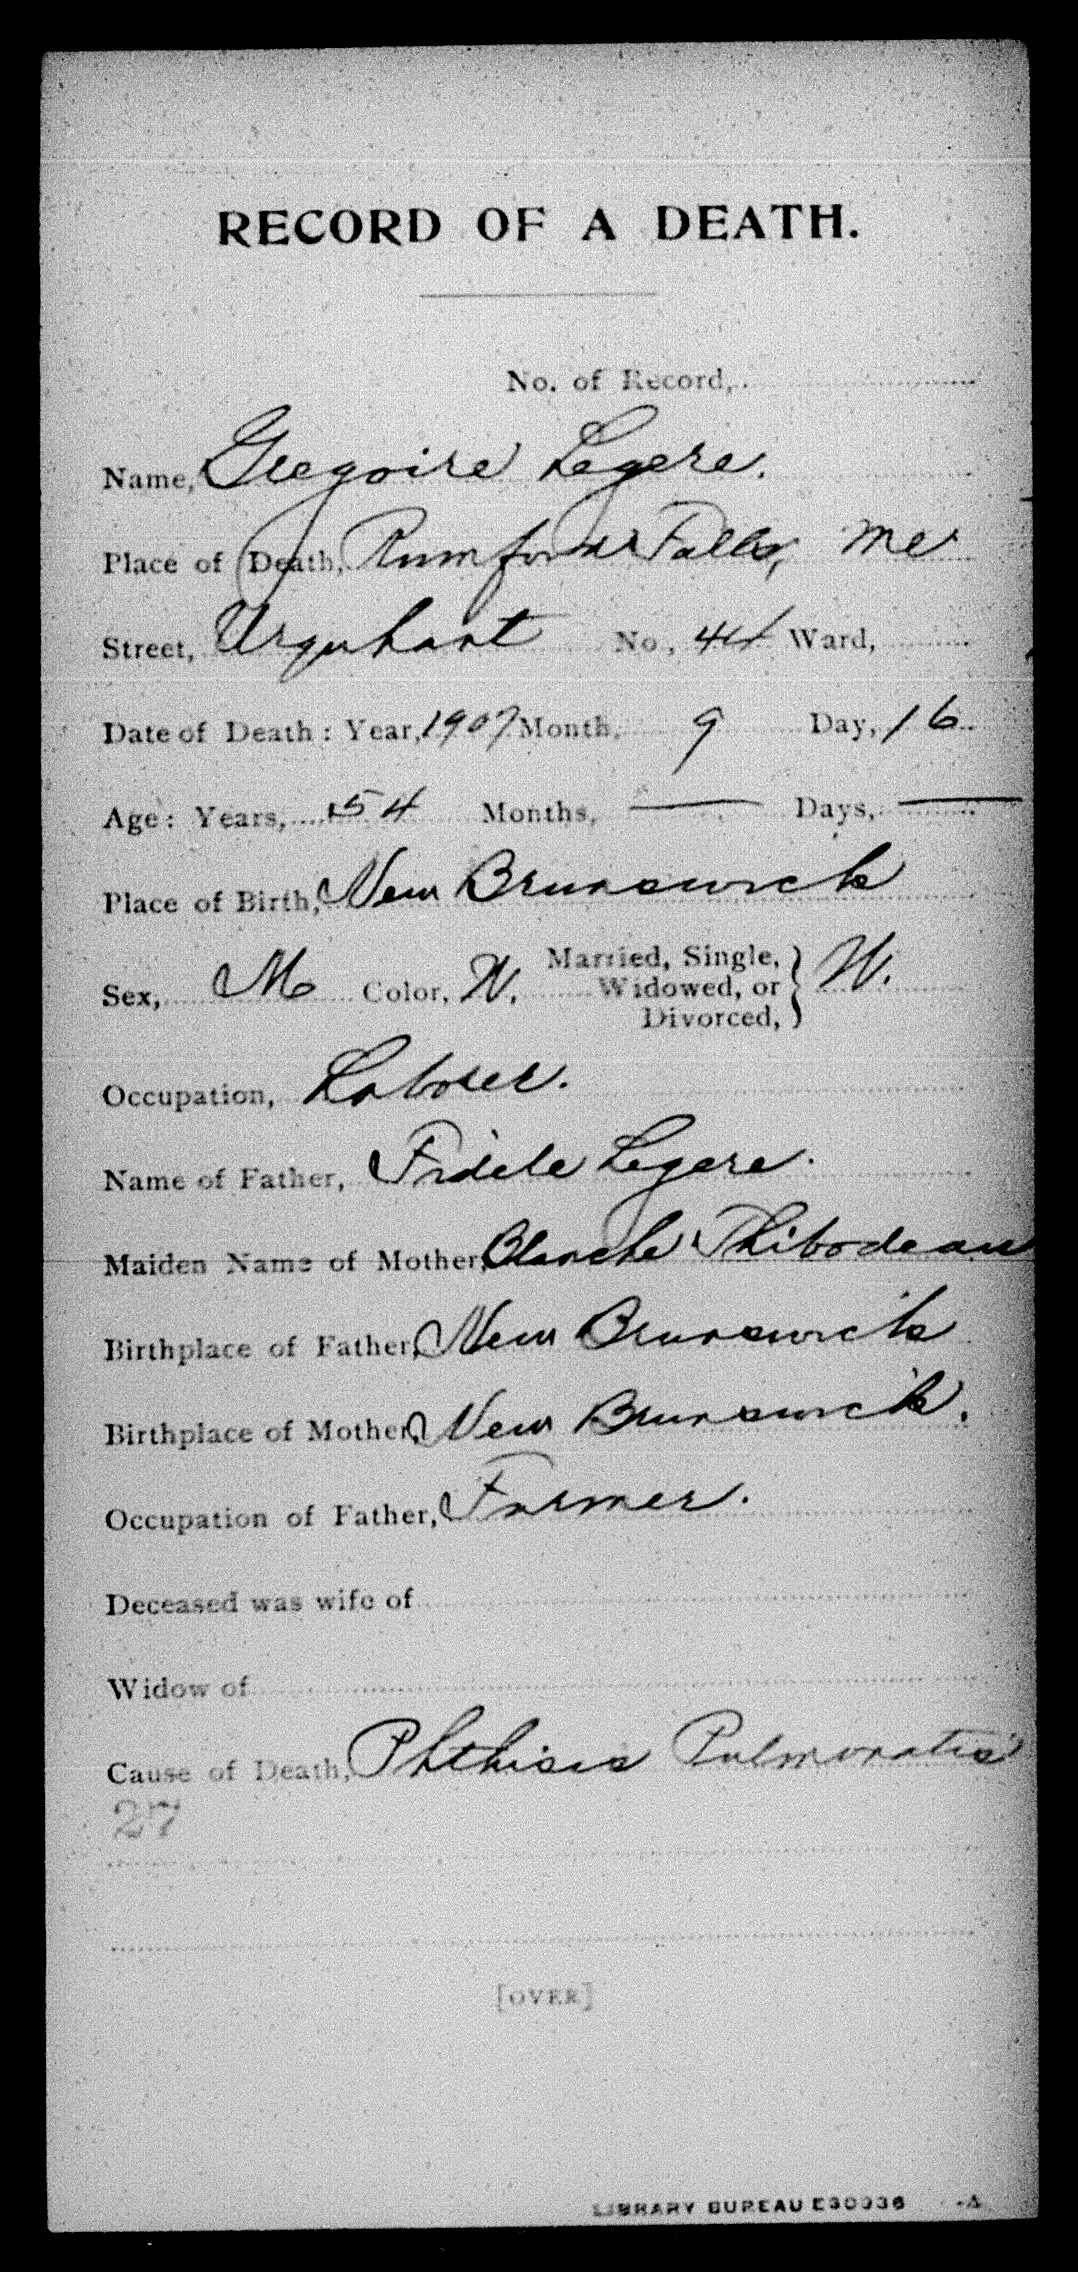 RECORD OF A DEATH.
No. of Record,
Name, Gregoire Legere.
Place of Death, Rumford Falls, Me
Street, Urquhart No., 44 Ward,
Date of Death: Year, 1907 Month, 9 Day, 16
Age: Years, 54 Months, — Days, —
Place of Birth, New Brunswick
Sex, M Color, W. Married, Single, Widowed, or Divorced, } W.
Occupation, Laborer.
Name of Father, Fidele Legere.
Maiden Name of Mother, Blanche Thibodeau
Birthplace of Father, New Brunswick
Birthplace of Mother, New Brunswick.
Occupation of Father, Farmer.
Deceased was wife of
Widow of
Cause of Death, Phthisis Pulmonalis
27
[OVER]
LIBRARY BUREAU E30936